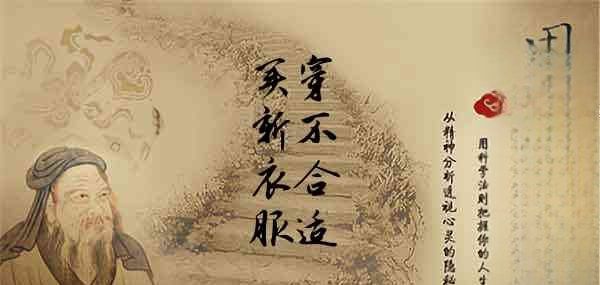 买新衣服
穿不合适
用科学法则把握你的人生
从精神分析透视心灵的隐秘